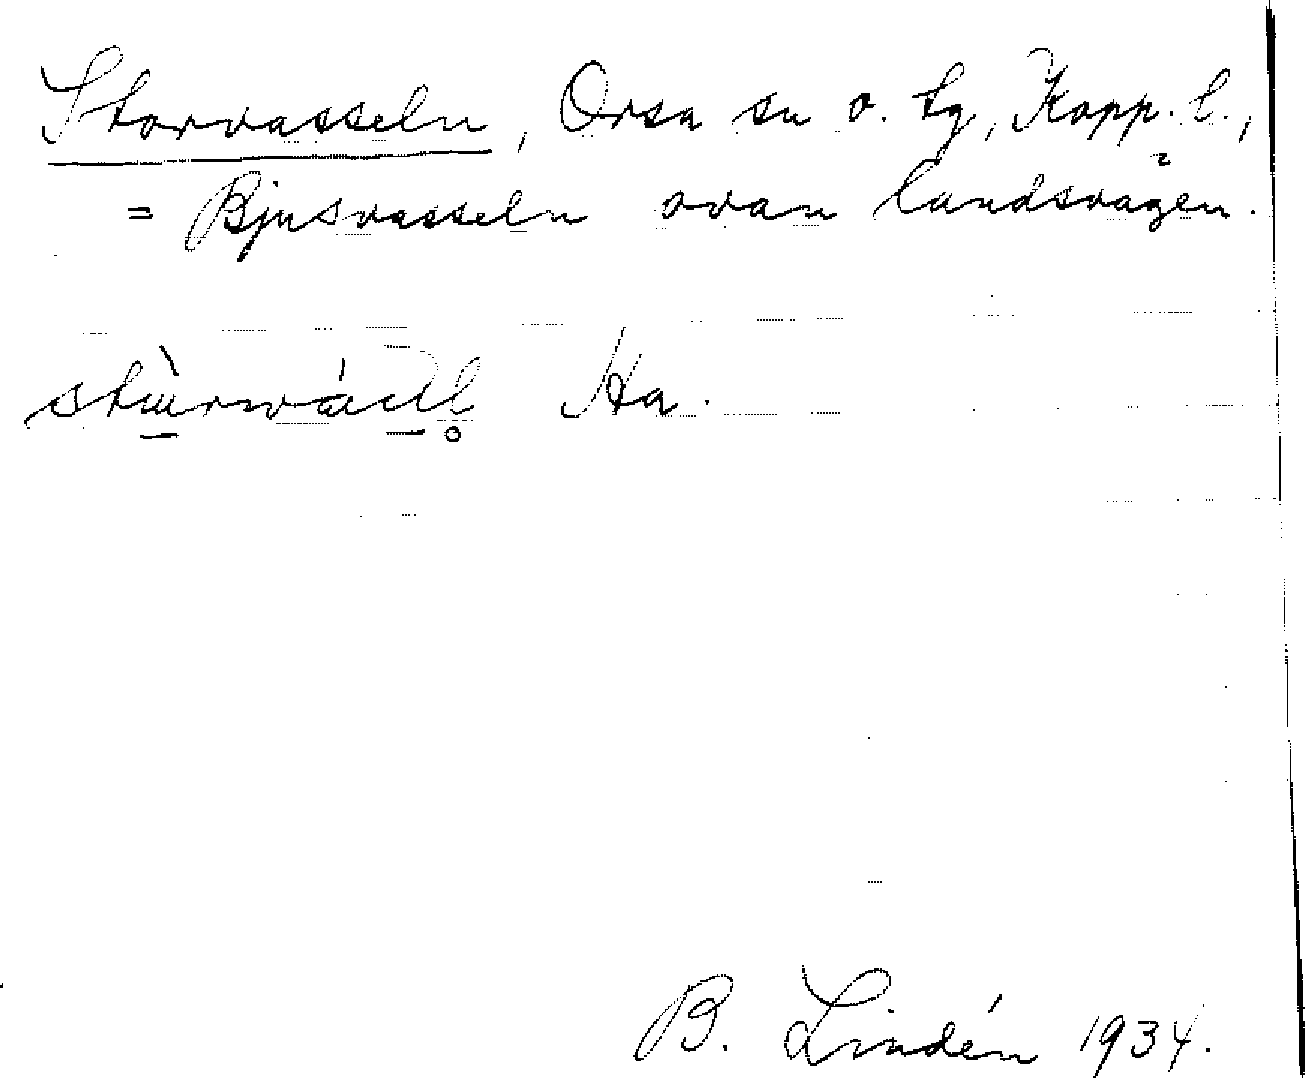 Storvasseln, Orsa sn o. tg, Kopp. l.,
= Bjusvasseln ovan landsvägen.
Ha.
B. Lindén 1934.